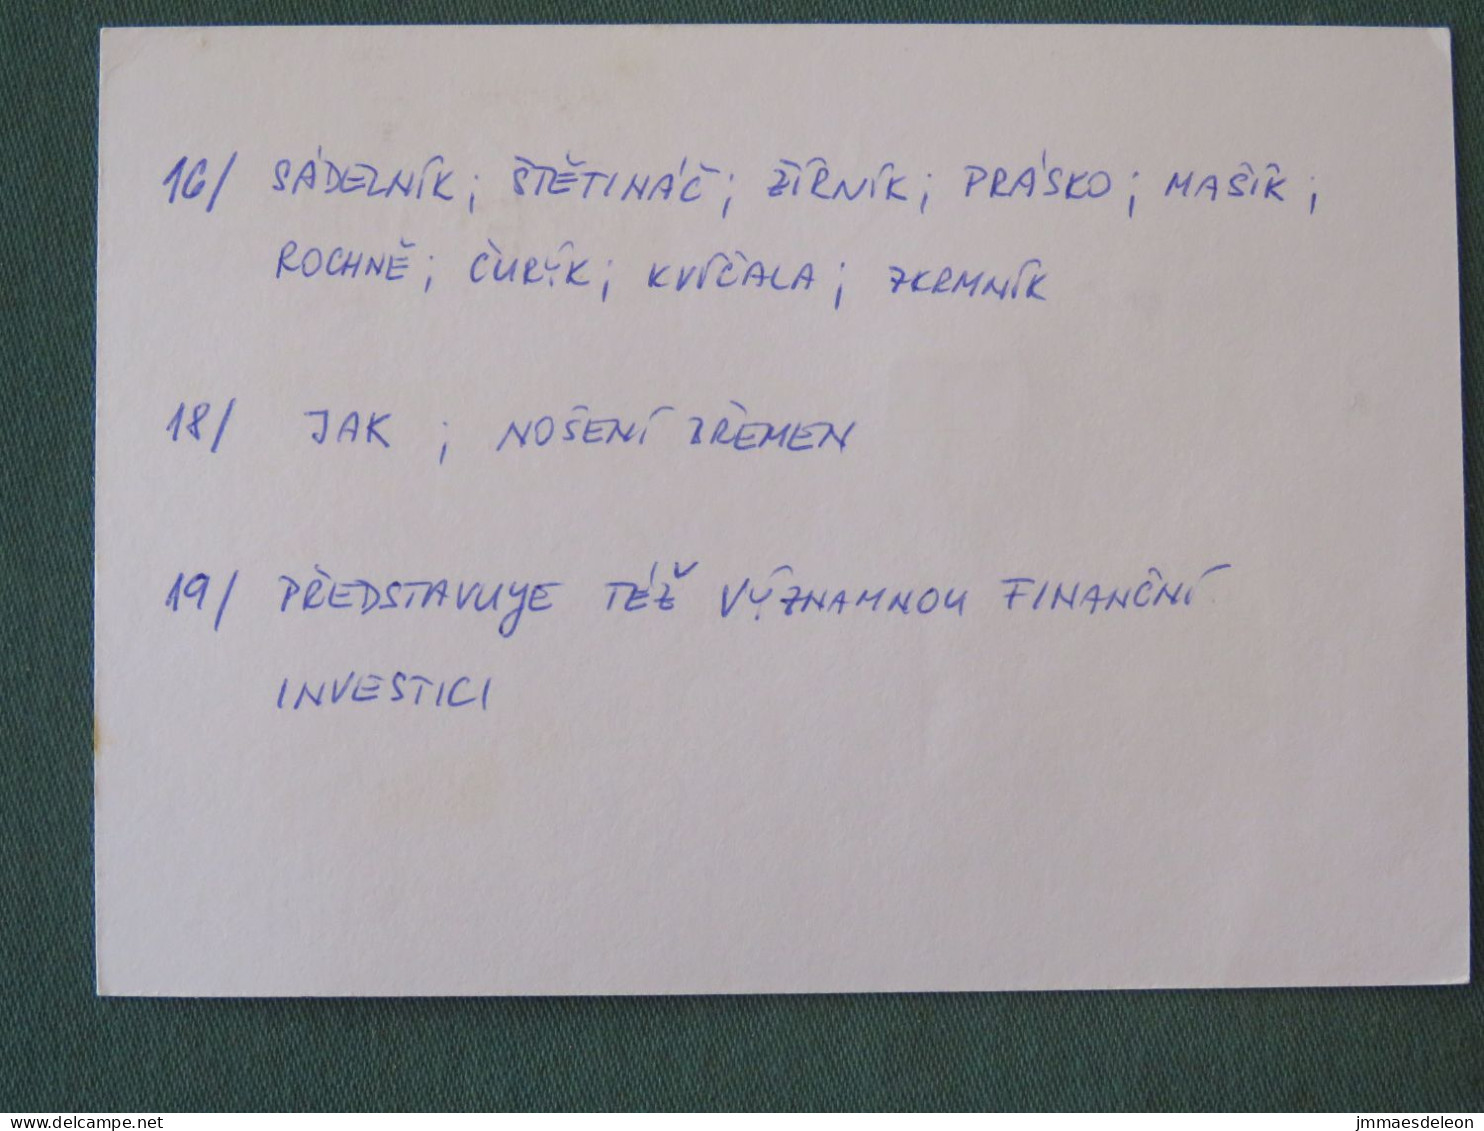 16/ SÁDELNÍK; ŠTĚTINÁČ; ŽÍRNÍK; PRÁSKO; MAŠÍK;
ROCHNĚ; ČURÍK; KVÍČALA; ZKRMNÍK
18/ JAK ; NOŠENÍ BŘEMEN
19/ PŘEDSTAVUJE TÉŽ VÝZNAMNOU FINANČNÍ
INVESTICI
delcampe.net
jmmaesdeleon